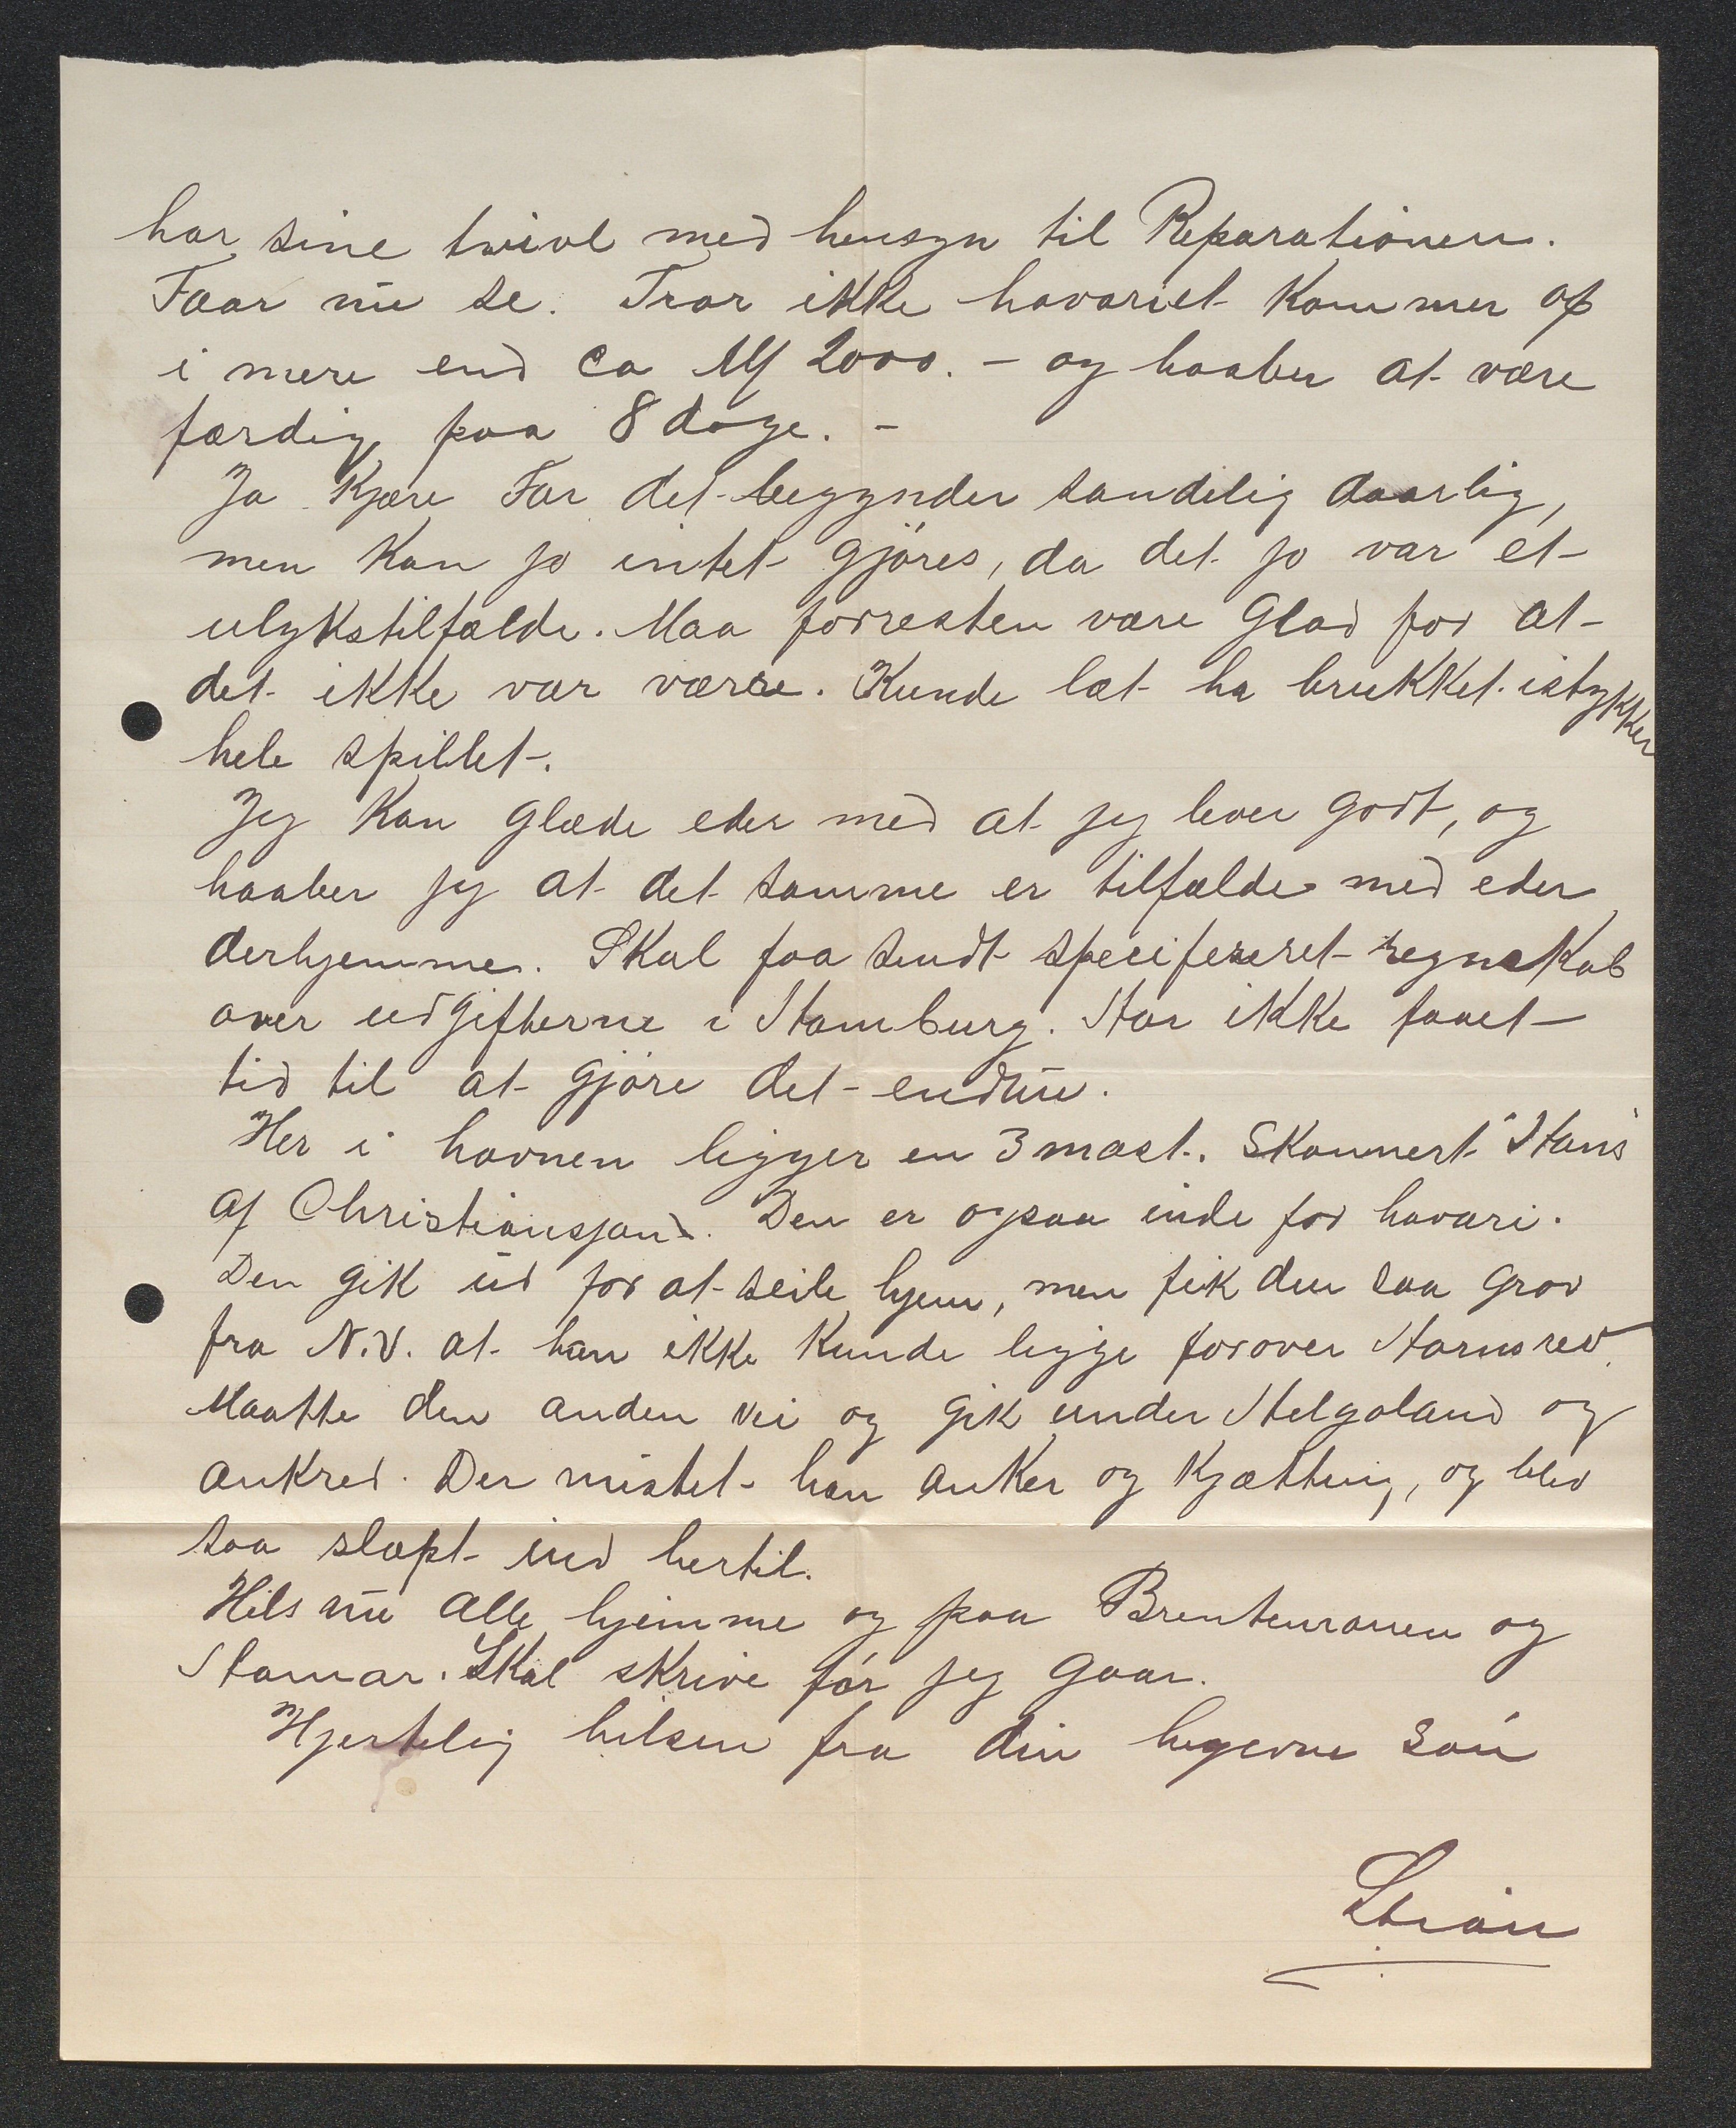 har sine twivl med hensyn til Reparationen.
Faar nu se. Tror ikke havariet kommer op
i mere end ca M 2000. - og haaber at være
færdig paa 8 dage. -
Ja Kjære Far det begynder sandelig daarlig,
men kan jo intet gjöres, da det jo var et
ulykstilfælde. Maa forresten være Glad for at
det ikke var værre. Kunde læt ha brukket istykker
hele spillet.
Jeg kan glæde eder med at jeg lever godt, og
haaber jeg at det samme er tilfælde med eder
derhjemme. Skal faa sendt specifeseret regnskab
over udgifterne i Hamburg. Har ikke faaet
tid til at gjöre det endnu.
Her i havnen ligger en 3 mast. Skonnert "Hans"
af Christiansand. Den er ogsaa inde for havari.
Den gik ud for at seile hjem, men fik den saa grov
fra N.V. at han ikke kunde ligge forover Hornsrev.
Maatte den anden vei og gik under Helgoland og
ankred. Der mistet han anker og Kjætting, og blev
saa slæpt ind hertil.
Hils nu alle hjemme og paa og
Hamar. Skal skrive för jeg gaar.
Hjertelig hilsen fra din hegivne sön